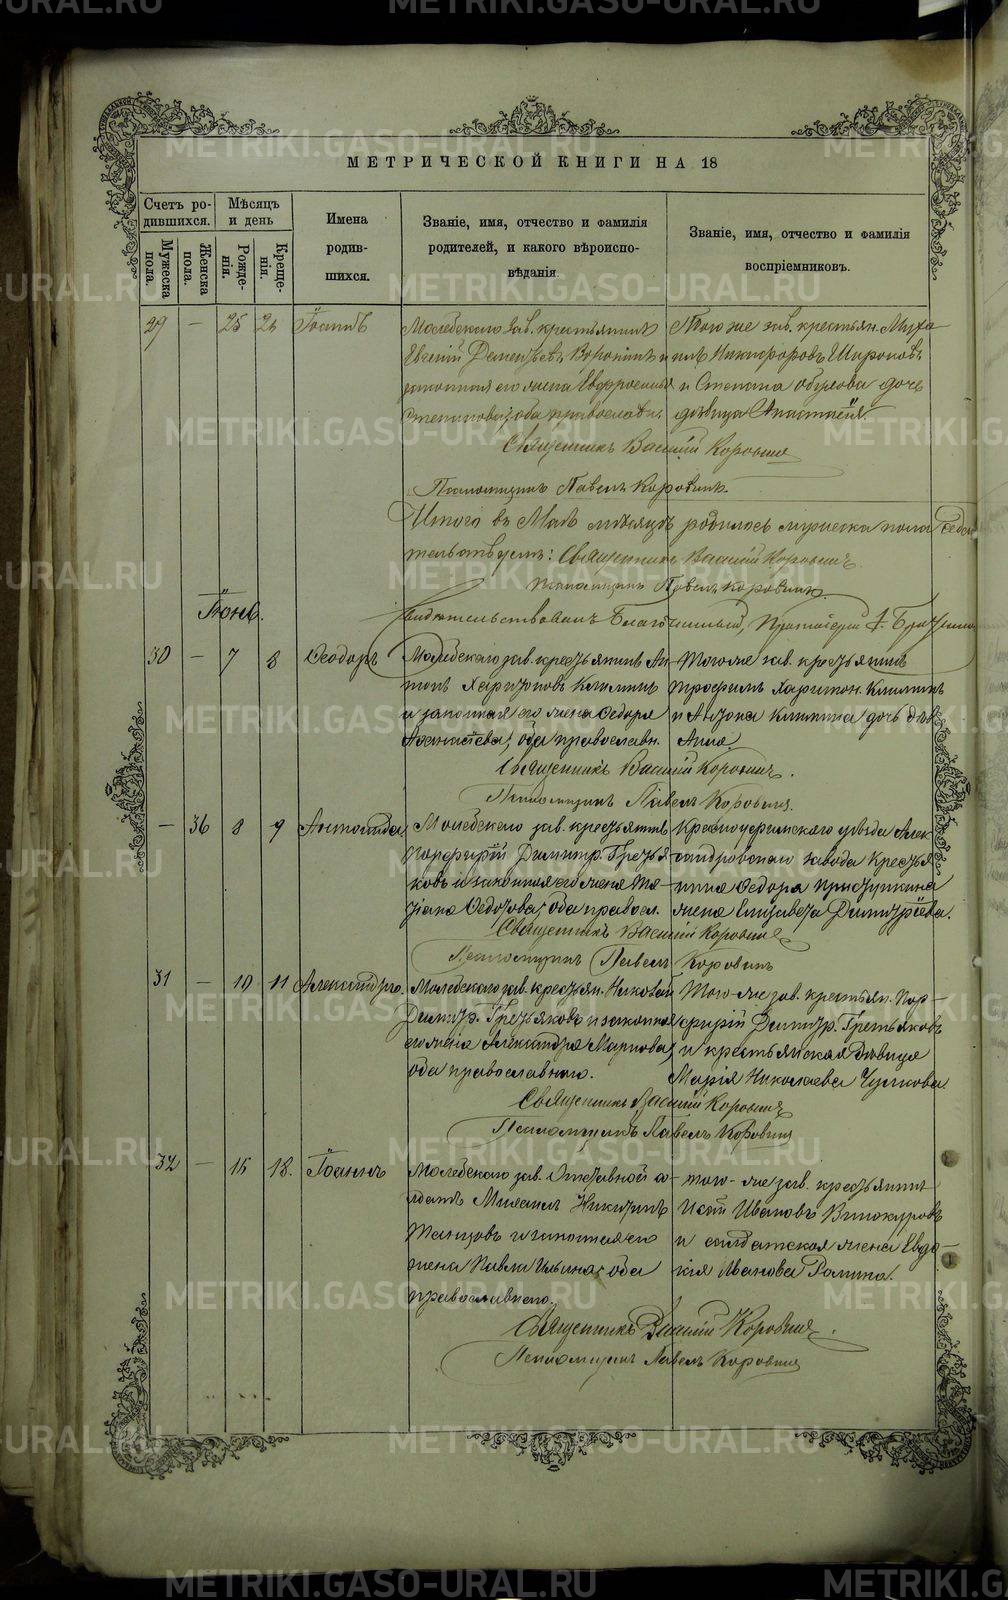 МЕТРИЧЕСКОЙ КНИГИ НА 18
Счетъ ро-
дившихся.
Мужеска пола.
Женска пола.
Мѣсяцъ
и день
Рожде-
нія.
Креще-
нія.
Имена
родив-
шихся.
Званіе, имя, отчество и фамилія
родителей, и какого вѣроиспо-
вѣданія
Званіе, имя, отчество и фамилія
воспріемниковъ.
29 — 25 26 Іоаннъ
Молебскаго зав. крестьянинъ
Евгеній Дементьевъ Воронинъ и
законная его жена Евфросинія
Степанова, оба православн.
Того же зав. крестьян. Миха-
илъ Никифоровъ Широковъ
и Степана дочь
дѣвица Анастасія
Священникъ Василій Коровинъ
Псаломщикъ Павелъ Коровинъ.
Итого въ Маѣ мѣсяцѣ родилось мужеска пола
Священникъ Василій Коровинъ.
Псаломщикъ Павелъ Коровинъ.
Свидѣтельствовалъ Благочинный, Протоіерей
Іюнь.
30 — 7 8 Ѳеодоръ
Молебскаго зав. крестьянинъ Ан-
тонъ Харитоновъ Климинъ
и законная его жена Ѳедора
оба православн.
Того же зав. крестьянинъ
Трофимъ Харитон. Климинъ
и Антона Климина дочь дѣв.
Анна.
Священникъ Василій Коровинъ.
Псаломщикъ Павелъ Коровинъ.
— 36 8 9 Антонида
Молебскаго зав. крестьянинъ
Порфирій Димитр. Третья-
ковъ и законная его жена Та-
тіана Ѳедотова, оба правосл.
Красноуфимскаго уѣзда Алек-
сандровскаго завода крестья-
нина Ѳедора Приступкина
жена Елизавета Димитріева.
Священникъ Василій Коровинъ
Псаломщикъ Павелъ Коровинъ
31 — 10 11 Александръ.
Молебскаго зав. крестьян. Николай
Димитр. Третьяковъ и законная
его жена Александра Маркова,
оба православнаго.
Того-же зав. крестьян. Пор-
фирій Димитр. Третьяковъ
и крестьянская дѣвица
Марія Николаева Чуткова
Священникъ Василій Коровинъ
Псаломщикъ Павелъ Коровинъ
32 — 15 18. Іоаннъ
Молебскаго зав. Отставной со-
лдатъ Михаилъ Никитинъ
и законная его
жена Павла Ильина, оба
православнаго.
того-же зав. крестьянинъ
Исай Ивановъ Винокуровъ
и солдатская жена Евдо-
кія Иванова
Священникъ Василій Коровинъ.
Псаломщикъ Павелъ Коровинъ
METRIKI.GASO-URAL.RU